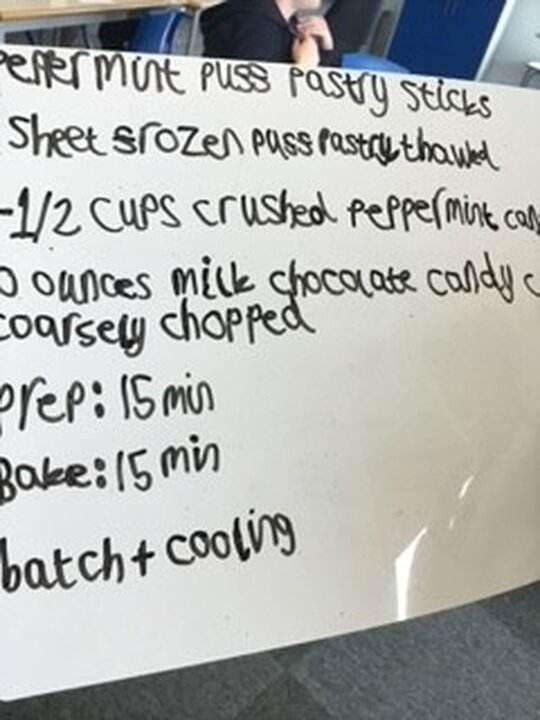 Peppermint puss pastry sticks
sheet srozen puss pastry thawed
-1/2 cups crushed peppermint
0 ounces milk chocolate candy c
coarsely chopped
prep: 15 min
Bake: 15 min
batch + cooling